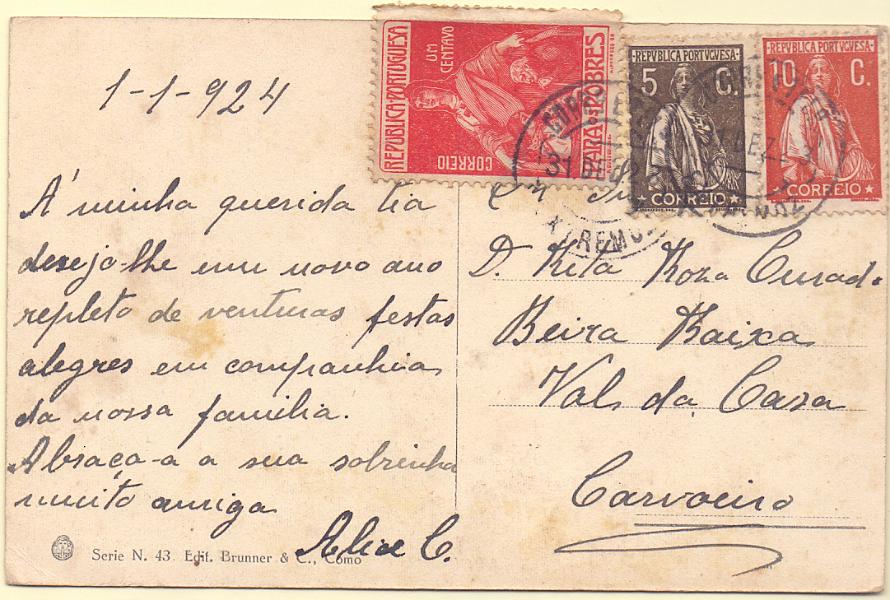 1-1-924
Á minha querida tia
desejo-lhe um novo ano
repleto de venturas festas
alegres em companhia
da nossa familia.
Abraça-a a sua sobrinha
muito amiga
Alice C.
Serie N. 43 Edit. Brunner & C., Como
REPUBLICA PORTUGUESA
UM CENTAVO
CORREIO
PARA OS POBRES
REPVBLICA PORTVGVESA
5 C.
CORREIO
REPVBLICA PORTVGVESA
10 C.
CORREIO
31 DEZ
EXTREMOZ
D. Rita Roza Curado
Beira Baixa
Val da Caza
Carvoeiro